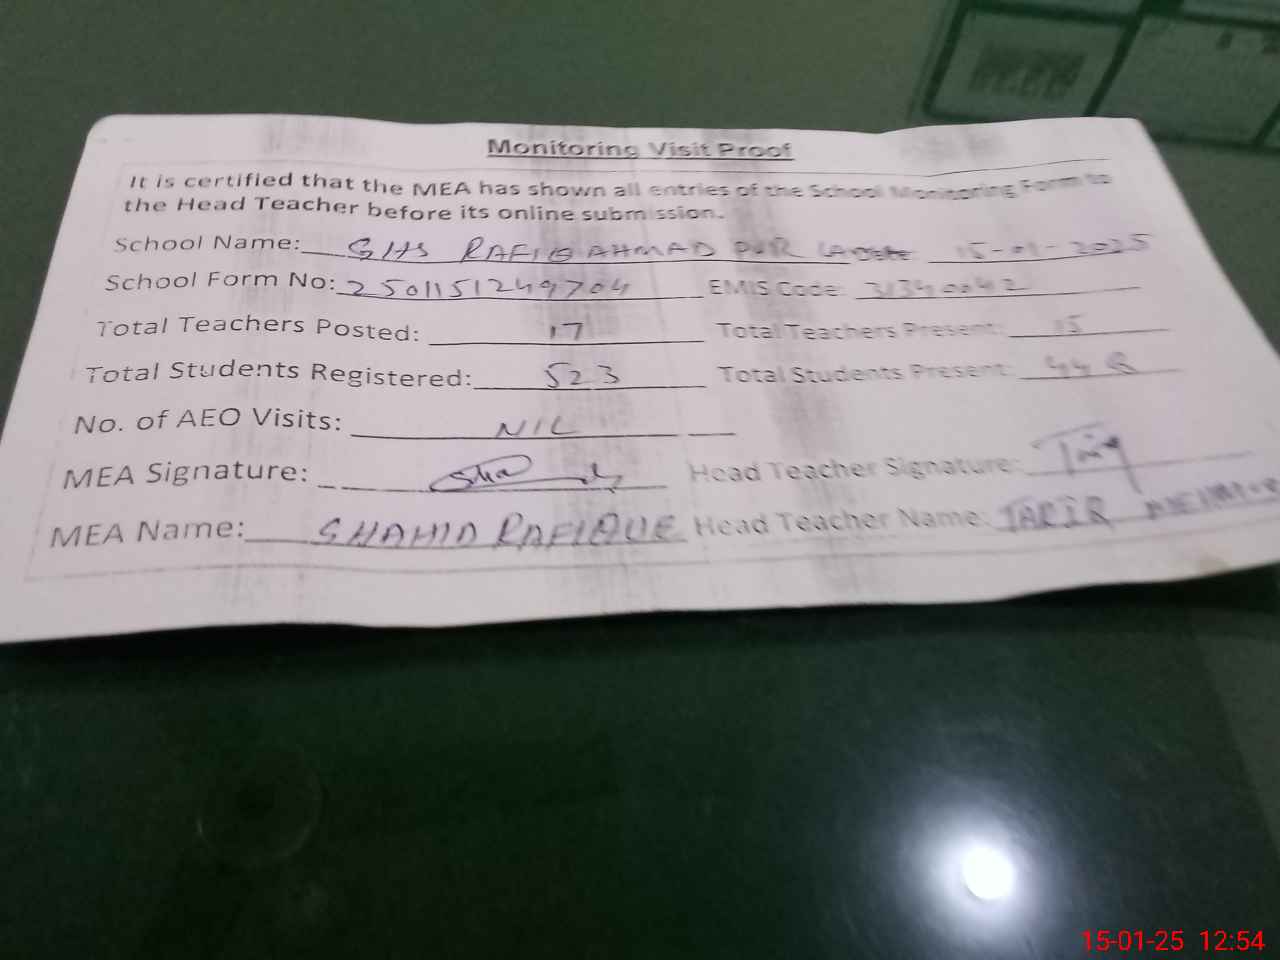 Monitoring Visit Proof
It is certified that the MEA has shown all entries of the School Monitoring Form to
the Head Teacher before its online submission.
School Name: GHS RAFIQ AHMAD PUR 15-01-2025
School Form No: 2501151249704 EMIS Code: 31340042
Total Teachers Posted: 17 Total Teachers Present: 15
Total Students Registered: 523 Total Students Present: 448
No. of AEO Visits: NIL
MEA Signature: Head Teacher Signature: Tariq
MEA Name: SHAHID RAFIQUE Head Teacher Name: TARIQ
15-01-25 12:54